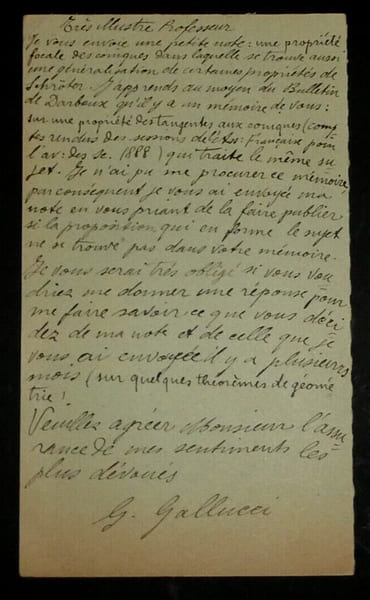 Très Illustre Professeur
Je vous envoie une petite note: une propriété
focale des coniques dans laquelle se trouve aussi
une généralisation de certaines propriétés de
Schröter. J'apprends au moyen du Bulletin
de Darboux qu'il y a un mémoire de vous:
sur une propriété des tangentes aux coniques (comp
tes rendus des sessions de l'Ass: Française pour
l'av: des Sc. 1888) qui traite le même su
jet. Je n'ai pu me procurer ce mémoire,
par conséquent je vous ai envoyé ma
note en vous priant de la faire publier
si la proposition qui en forme le sujet
ne se trouve pas dans votre mémoire.
Je vous serai très obligé si vous vou
driez me donner une réponse pour
me faire savoir ce que vous déci
dez de ma note et de celle que je
vous ai envoyée il y a plusieurs
mois (sur quelques théorèmes de géomé
trie!
Veuillez agréer Monsieur l'assu
rance de mes sentiments les
plus dévoués
G. Gallucci